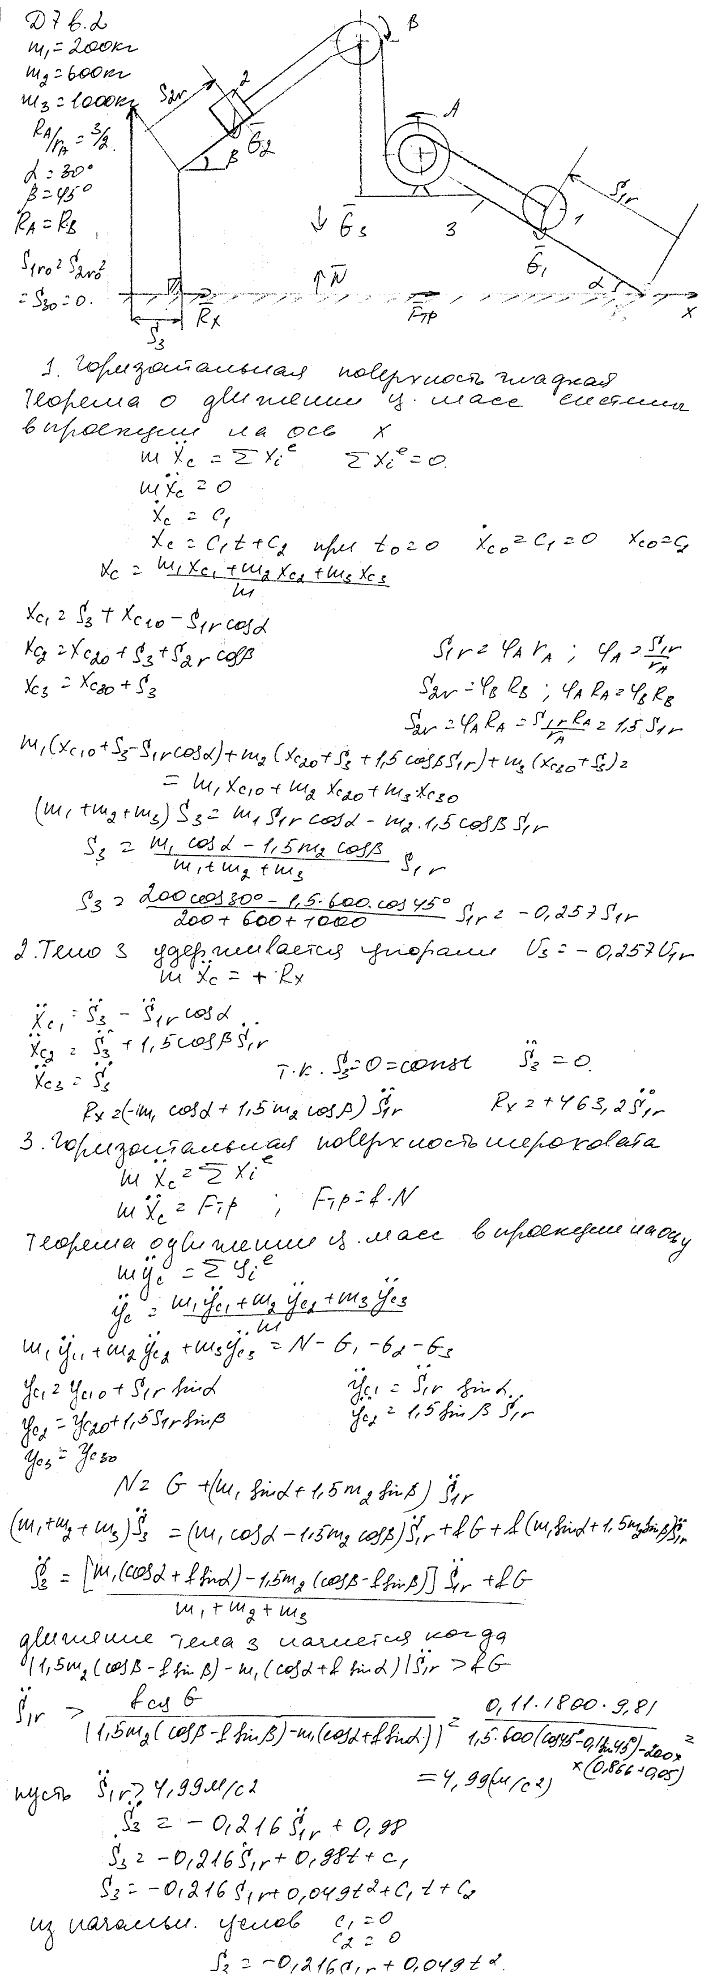 Д7 в.2
m₁=200кг
m₂=600кг
m₃=1000кг
R_A/r_A = 3/2.
α=30°
β=45°
R_A=R_B
S₁r₀=S₂r₀=
=S₃₀=0.
S₂r
2
G̅₂
β
B
A
S₁r
1
G̅₁
3
G̅₃
N̅
α
S₃
R̅x
F̅тр
x
1. Горизонтальная поверхность гладкая
Теорема о движении ц. масс системы
в проекции на ось x
mẍc = Σxᵢᵉ Σxᵢᵉ=0.
mẍc=0
ẋc = C₁
xc = C₁t+C₂ при t₀=0 ẋc₀=C₁=0 xc₀=C₂
xc = (m₁xc₁+m₂xc₂+m₃xc₃)/m
xc₁=S₃+xc₁₀−S₁r cosα
xc₂=xc₂₀+S₃+S₂r cosβ S₁r=φ_A r_A ; φ_A=S₁r/r_A
xc₃=xc₃₀+S₃ S₂r=φ_B R_B ; φ_A R_A=φ_B R_B
S₂r=φ_A R_A=S₁r R_A/r_A=1,5 S₁r
m₁(xc₁₀+S₃−S₁r cosα)+m₂(xc₂₀+S₃+1,5cosβS₁r)+m₃(xc₃₀+S₃)=
= m₁xc₁₀+m₂xc₂₀+m₃xc₃₀
(m₁+m₂+m₃)S₃=m₁S₁r cosα−m₂·1,5cosβS₁r
S₃ = (m₁cosα−1,5m₂cosβ)/(m₁+m₂+m₃) S₁r
S₃= (200cos30°−1,5·600·cos45°)/(200+600+1000) S₁r=−0,257S₁r
2. Тело 3 удерживается упорами V₃=−0,257V₁r
mẍc=+Rx
ẍc₁=S̈₃−S̈₁r cosα
ẍc₂=S̈₃+1,5cosβS̈₁r
ẍc₃=S̈₃ т.к. S₃=0=const S̈₃=0.
Rx=(−m₁cosα+1,5m₂cosβ)S̈₁r Rx=+463,2S̈₁r
3. Горизонтальная поверхность шероховата
mẍc=Σxᵢᵉ
mẍc=Fтр ; Fтр=f·N
Теорема о движении ц. масс в проекции на ось y
mÿc=Σyᵢᵉ
ÿc = (m₁ÿc₁+m₂ÿc₂+m₃ÿc₃)/m
m₁ÿc₁+m₂ÿc₂+m₃ÿc₃=N−G₁−G₂−G₃
yc₁=yc₁₀+S₁r sinα ÿc₁=S̈₁r sinα
yc₂=yc₂₀+1,5S₁r sinβ ÿc₂=1,5sinβS̈₁r
yc₃=yc₃₀
N=G+(m₁sinα+1,5m₂sinβ)S̈₁r
(m₁+m₂+m₃)S̈₃=(m₁cosα−1,5m₂cosβ)S̈₁r+fG+f(m₁sinα+1,5m₂sinβ)S̈₁r
S̈₃= ([m₁(cosα+fsinα)−1,5m₂(cosβ−fsinβ)]S̈₁r+fG)/(m₁+m₂+m₃)
движение тела 3 начнется когда
|1,5m₂(cosβ−fsinβ)−m₁(cosα+fsinα)|S̈₁r>fG
S̈₁r > fсц G/|1,5m₂(cosβ−fsinβ)−m₁(cosα+fsinα)| = 0,11·1800·9,81/1,5·600(cos45°−0,1sin45°)−200×
×(0,866+0,05) =
=4,99(м/с²)
пусть S̈₁r>4,99м/с²
S̈₃=−0,216S̈₁r+0,98
Ṡ₃=−0,216Ṡ₁r+0,98t+C₁
S₃=−0,216S₁r+0,049t²+C₁t+C₂
из начальн. услов C₁=0
C₂=0
S₃=−0,216S₁r+0,049t².